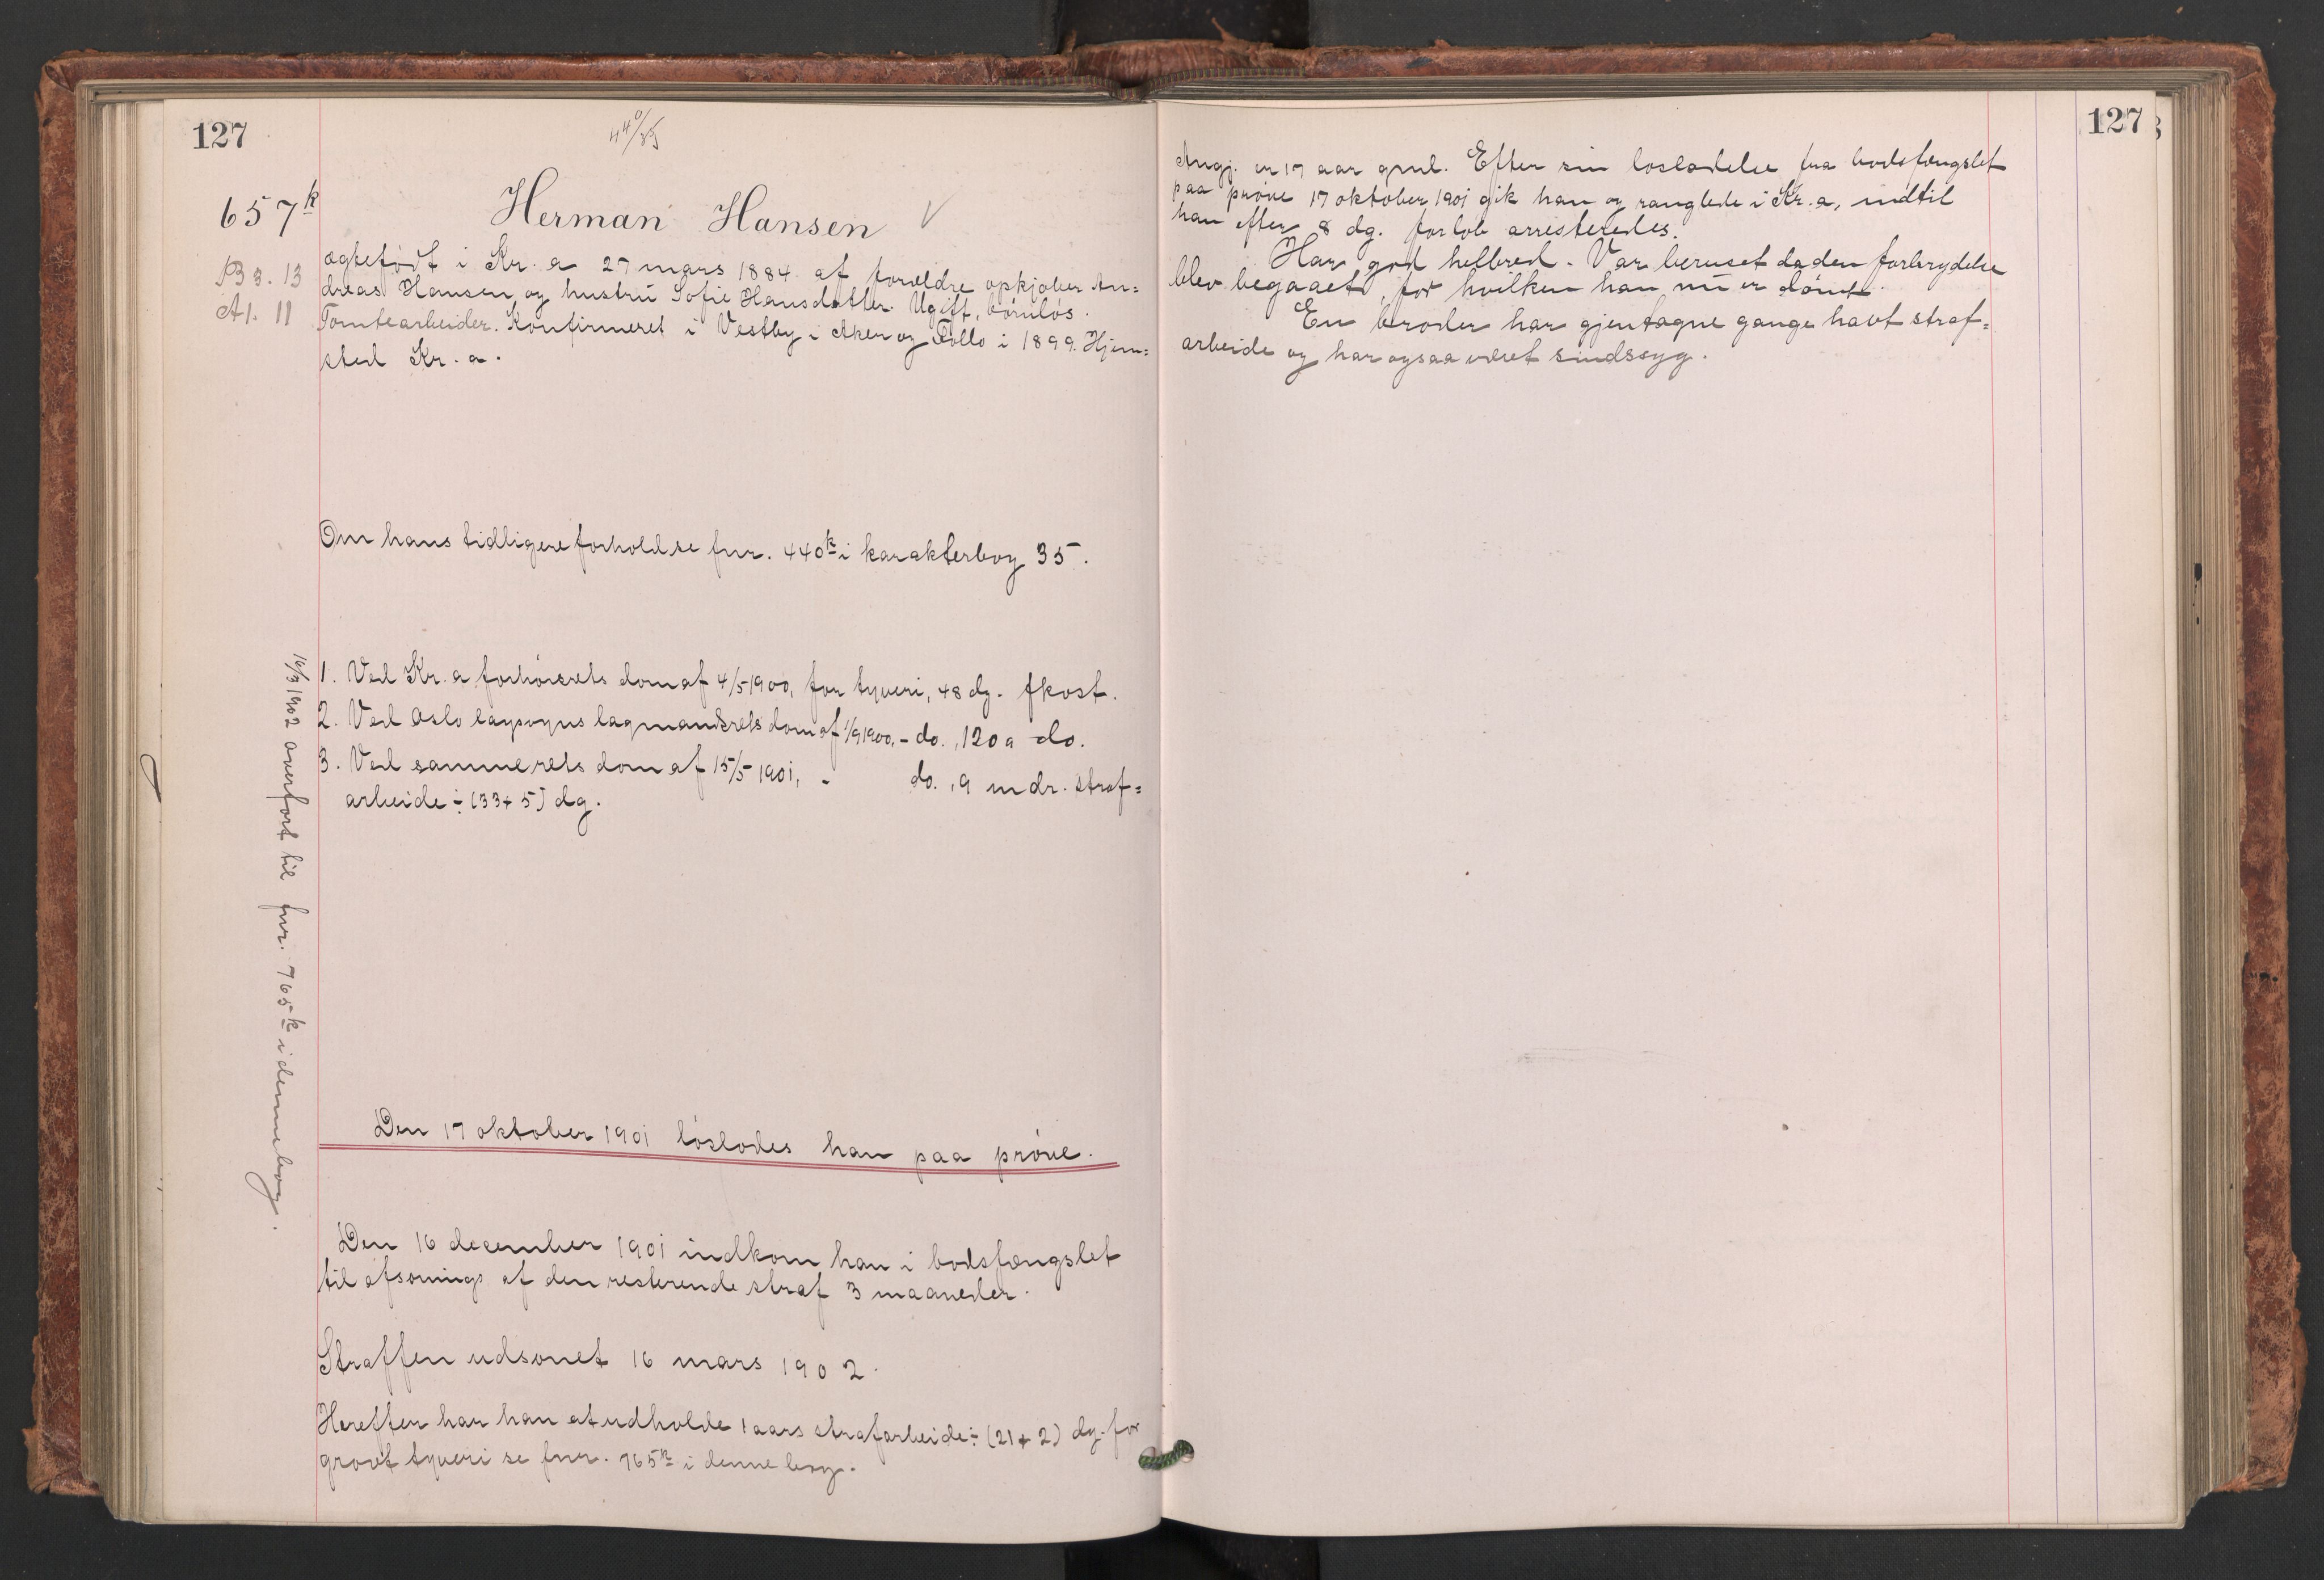 127
440/35
657k
Herman Hansen
B 3. 13
A 1. 11
ægtefødt i Kr.a 27 mars 1884 af forældre opkjøber An=
dreas Hansen og hustru Sofie Hansdatter. Ugift, børnløs.
Tomtearbeider. Konfirmeret i Vestby i Aker og Follo i 1899. Hjem=
sted Kr.a.
Om hans tidligere forhold se fnr. 440k i karakterbog 35.
1. Ved Kr.a forhørsrets dom af 4/5 1900, for tyveri, 48 dg. fkost.
2. Ved Oslo lagsogns lagmandsrets dom af 1/9 1900, - do., 120 a do.
3. Ved samme rets dom af 15/5 1901, - do., 9 mdr. straf=
arbeide ÷ (33+5) dg.
16/3 1902 overført til fnr. 765k i denne bog.
Den 17 oktober 1901 løslodes han paa prøve.
Den 16 december 1901 indkom han i bodsfængslet
til afsonings af den resterende straf 3 maaneder.
Straffen udsonet 16 mars 1902.
Herefter har han at udholde 1 aars strafarbeide ÷ (21+2) dg. for
grovt tyveri se fnr. 765k i denne bog.
127
Angj. er 17 aar gml. Efter sin løsladelse fra bodsfængslet
paa prøve 17 oktober 1901 gik han og ranglede i Kr.a, indtil
han efter 8 dg. forløb arresteredes.
Har god helbred. Var beruset da den forbrydelse
blev begaaet, for hvilken han nu er dømt.
En broder har gjentagne gange havt straf=
arbeide og har ogsaa været sindssyg.